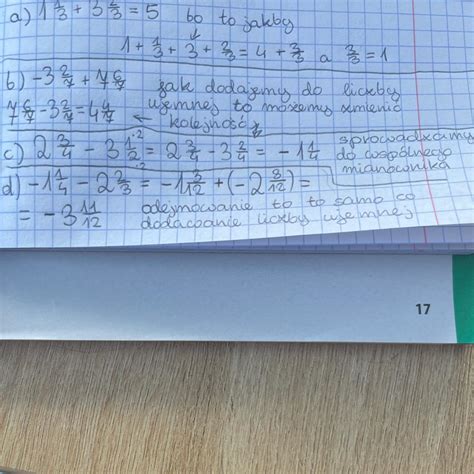 a) 1 1/3 + 3 2/3 = 5 bo to jakby
1 + 1/3 + 3 + 2/3 = 4 + 3/3 a 3/3 = 1
b) -3 2/7 + 7 6/7 jak dodajemy do liczby
7 6/7 - 3 2/7 = 4 4/7 ujemnej to możemy zmienić
← kolejność
c) 2 3/4 - 3 1/2 ·2 ·2 = 2 3/4 - 3 2/4 = - 1 1/4 sprowadzamy
do wspólnego
mianownika
d) -1 1/4 - 2 2/3 = -1 3/12 + (-2 8/12) =
= -3 11/12 odejmowanie to to samo co
dodawanie liczby ujemnej
17